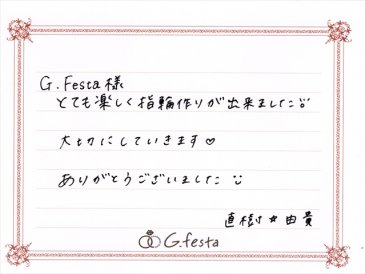 G.Festa様
とても楽しく指輪作りが出来ました
大切にしていきます♡
ありがとうございました
直樹☆由貴
G.festa